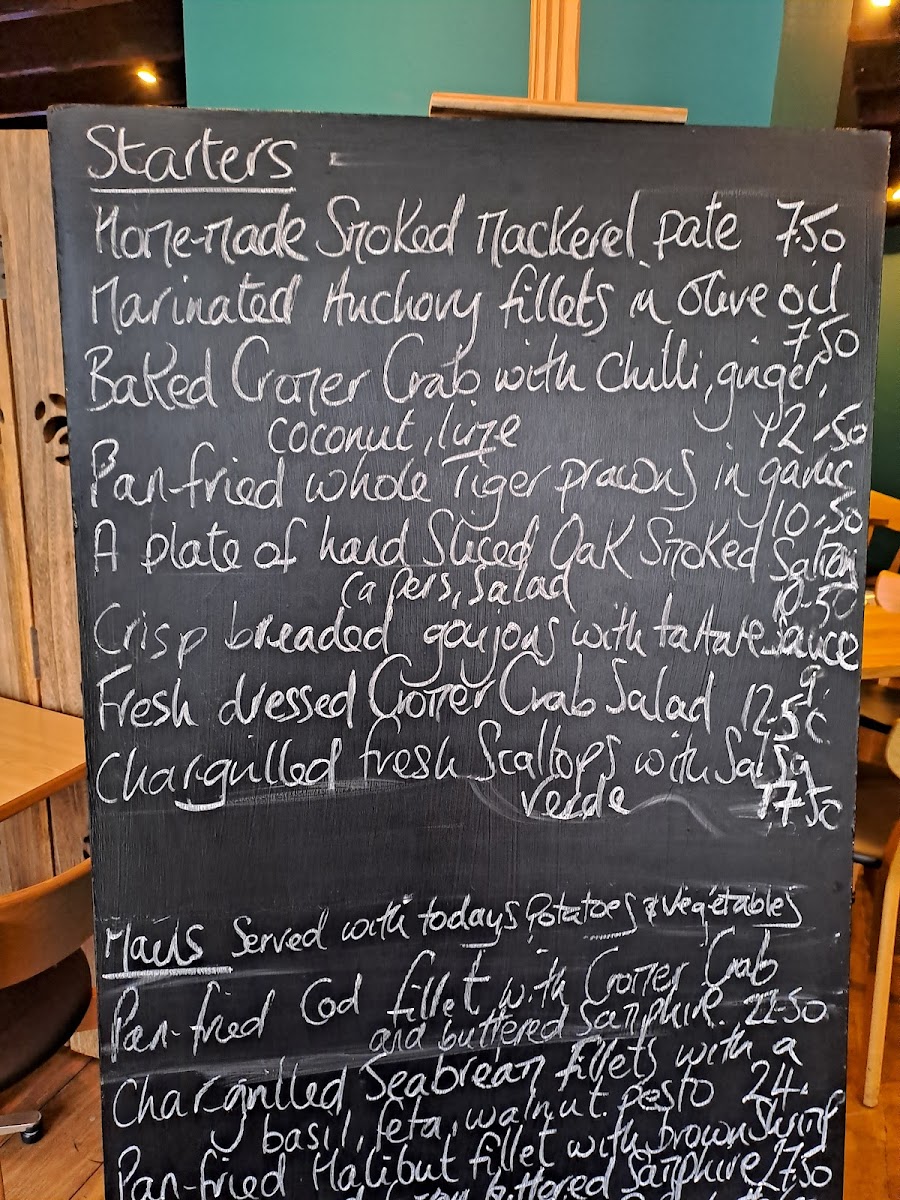 Starters -
Home-made Smoked Mackerel pate 7.50
Marinated Anchovy fillets in Olive oil
7.50
Baked Cromer Crab with Chilli, ginger,
coconut, lime 12.50
Pan-fried whole Tiger prawns in garlic
10.50
A plate of hand Sliced Oak Smoked Salmon
Capers, Salad 10-50
Crisp breaded goujons with tartare sauce
9.
Fresh dressed Cromer Crab Salad 12.50
Chargrilled fresh Scallops with Salsa
verde 17.50
Mains Served with todays Potatoes & Vegetables
Pan-fried Cod fillet with Cromer Crab
and buttered Samphire. 22.50
Chargrilled Seabream fillets with a
basil, feta, walnut pesto 24.
Pan-fried Halibut fillet with brown Shrimp
buttered Samphire 27.50